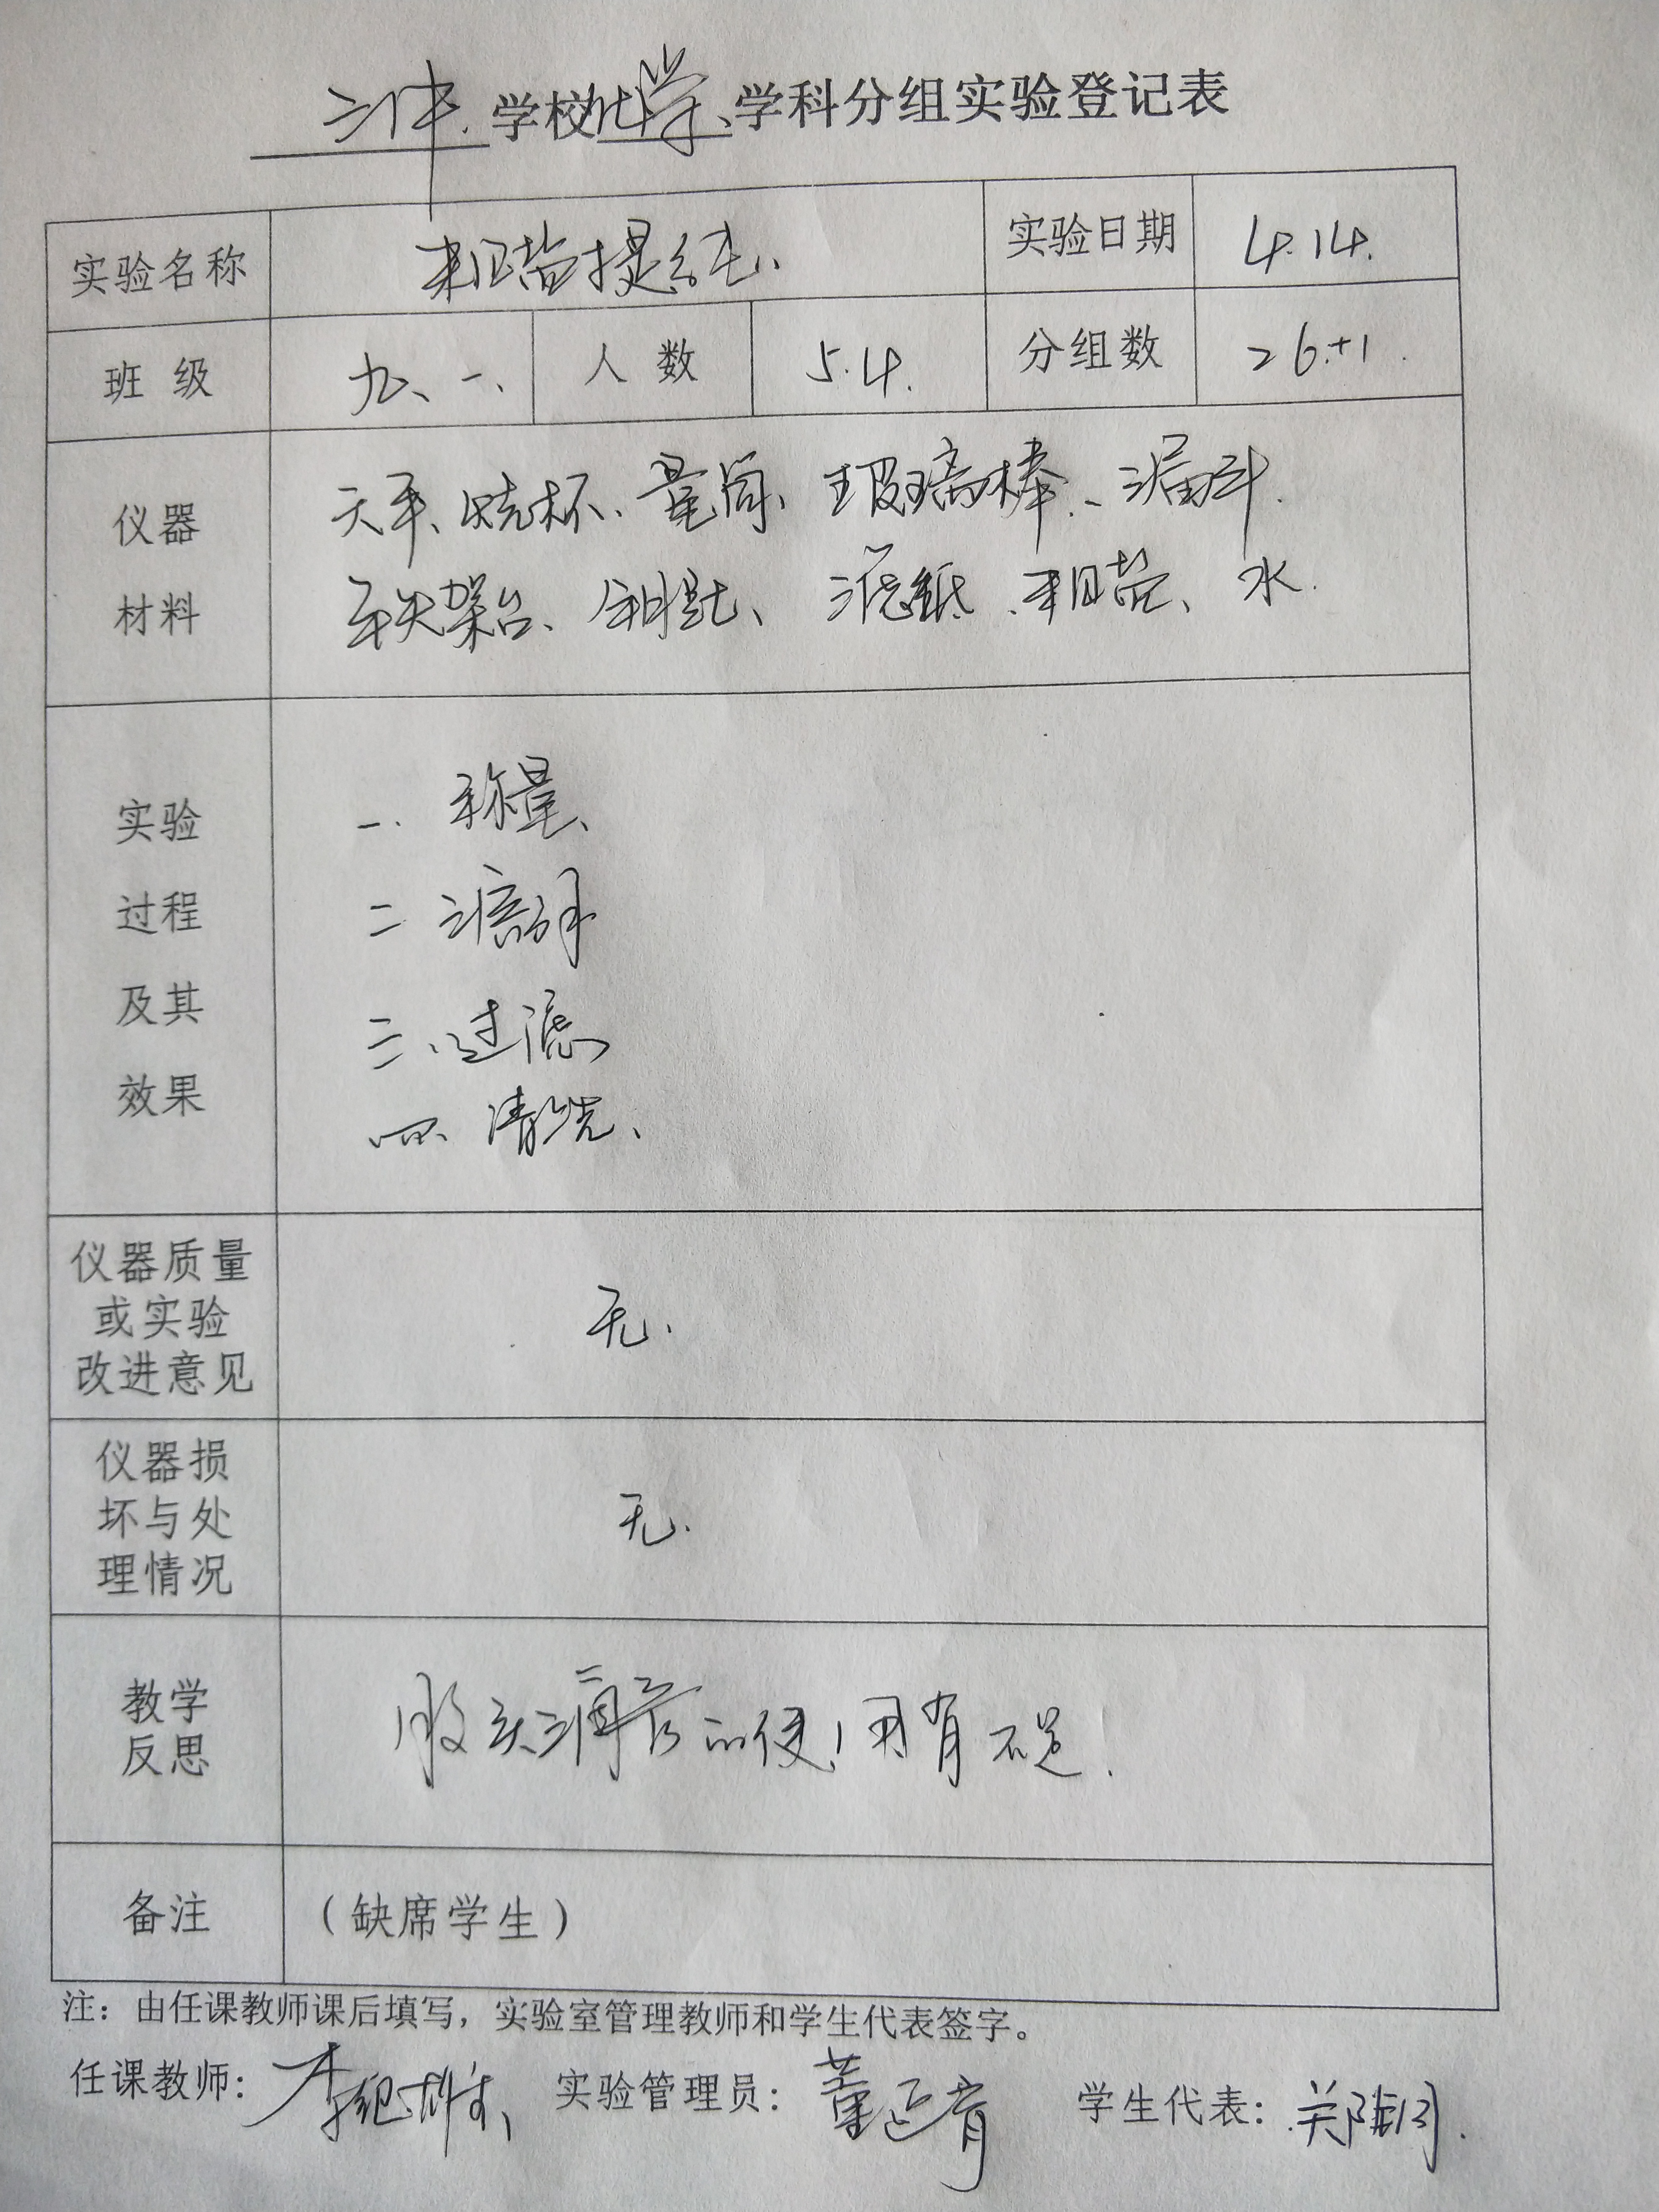 三中.学校化学、学科分组实验登记表
实验名称 粗盐提纯、 实验日期 4.14.
班 级 九、一、 人 数 54. 分组数 26+1.
仪器
材料
天平、烧杯、量筒、玻璃棒、漏斗.
铁架台、钥匙、滤纸、粗盐、水.
实验
过程
及其
效果
一、称量、
二 溶解
三、过滤
四、清洗、
仪器质量
或实验
改进意见
无.
仪器损
坏与处
理情况
无.
教学
反思
胶头滴管的使用有不足!
备注 (缺席学生)
注:由任课教师课后填写,实验室管理教师和学生代表签字。
任课教师: 实验管理员: 学生代表: